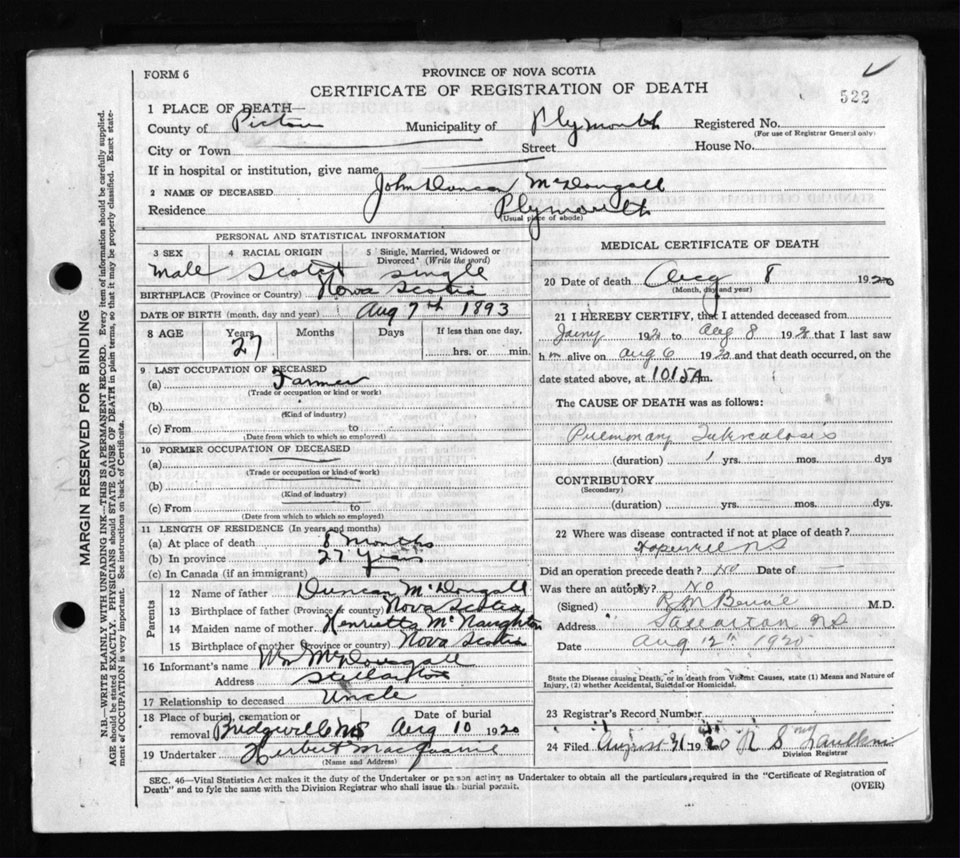 FORM 6
PROVINCE OF NOVA SCOTIA
CERTIFICATE OF REGISTRATION OF DEATH
522
1 PLACE OF DEATH—
County of Pictou Municipality of Plymouth Registered No.
(For use of Registrar General only)
City or Town Street House No.
If in hospital or institution, give name
2 NAME OF DECEASED John Duncan McDougall
Residence Plymouth
(Usual place of abode)
PERSONAL AND STATISTICAL INFORMATION
3 SEX 4 RACIAL ORIGIN 5 Single, Married, Widowed or Divorced? (Write the word)
Male Scotch Single
BIRTHPLACE (Province or Country) Nova Scotia
DATE OF BIRTH (month, day and year) Aug 7th 1893
8 AGE Years Months Days If less than one day,
27 hrs. or min.
9 LAST OCCUPATION OF DECEASED
(a) Farmer
(Trade or occupation or kind or work)
(b)
(Kind of industry)
(c) From to
(Date from which to which so employed)
10 FORMER OCCUPATION OF DECEASED
(a)
(Trade or occupation or kind of work)
(b)
(Kind of industry)
(c) From to
(Date from which to which so employed)
11 LENGTH OF RESIDENCE (In years and months)
(a) At place of death 8 Months
(b) In province 27 Years
(c) In Canada (if an immigrant)
Parents
12 Name of father Duncan McDougall
13 Birthplace of father (Province or country) Nova Scotia
14 Maiden name of mother Henrietta McNaughton
15 Birthplace of mother (Province or country) Nova Scotia
16 Informant's name Wm McDougall
Address Stellarton
17 Relationship to deceased Uncle
18 Place of burial, cremation or removal Bridgeville NS Date of burial Aug 10 1920
19 Undertaker Herbert MacQuarrie
(Name and Address)
MEDICAL CERTIFICATE OF DEATH
20 Date of death Aug 8 1920
(Month, day and year)
21 I HEREBY CERTIFY, that I attended deceased from
192 to Aug 8 192 that I last saw
him alive on Aug 6 1920 and that death occurred, on the
date stated above, at 10 15 A m.
The CAUSE OF DEATH was as follows:
Pulmonary Tuberculosis
(duration) 1 yrs. mos. dys
CONTRIBUTORY
(Secondary)
(duration) yrs. mos. dys.
22 Where was disease contracted if not at place of death?
Hopewell NS
Did an operation precede death? NO Date of
Was there an autopsy? NO
(Signed) R M M.D.
Address Stellarton NS
Date Aug 12th 1920
State the Disease causing Death, or in death from Violent Causes, state (1) Means and Nature of
Injury, (2) whether Accidental, Suicidal or Homicidal.
23 Registrar's Record Number
24 Filed August 1920 R S
Division Registrar
SEC. 46—Vital Statistics Act makes it the duty of the Undertaker or person acting as Undertaker to obtain all the particulars required in the "Certificate of Registration of
Death" and to fyle the same with the Division Registrar who shall issue the burial permit.
(OVER)
MARGIN RESERVED FOR BINDING
N.B.—WRITE PLAINLY WITH UNFADING INK—THIS IS A PERMANENT RECORD. Every item of information should be carefully supplied.
AGE should be stated EXACTLY. PHYSICIANS should STATE CAUSE OF DEATH in plain terms, so that it may be properly classified. Exact state-
ment of OCCUPATION is very important. See instructions on back of Certificate.